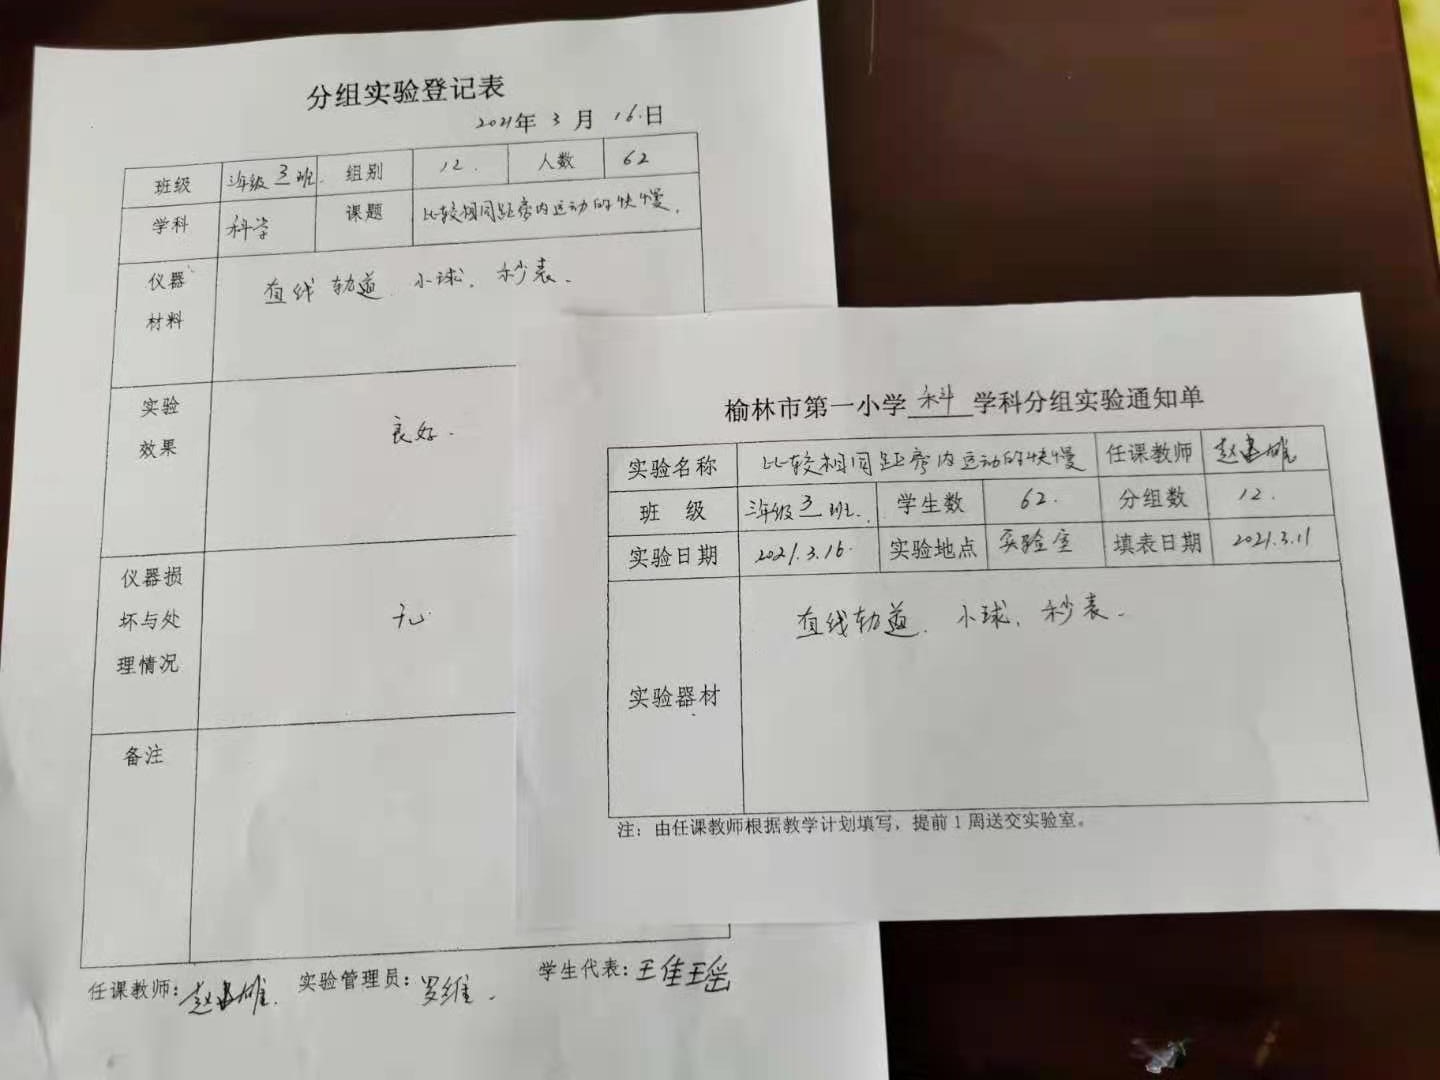 分组实验登记表
2021年 3 月 16.日
班级 三年级 3 班. 组别 12. 人数 62
学科 科学 课题 比较相同距离内运动的快慢.
仪器材料 直线轨道. 小球. 秒表.
实验效果 良好.
仪器损坏与处理情况 无
备注
任课教师: 赵 雄. 实验管理员: 罗维. 学生代表: 王佳瑶
榆林市第一小学 科 学科分组实验通知单
实验名称 比较相同距离内运动的快慢 任课教师 赵 雄
班 级 三年级 3 班. 学生数 62. 分组数 12.
实验日期 2021.3.16. 实验地点 实验室 填表日期 2021.3.11
实验器材 直线轨道. 小球. 秒表.
注: 由任课教师根据教学计划填写, 提前 1 周送交实验室。